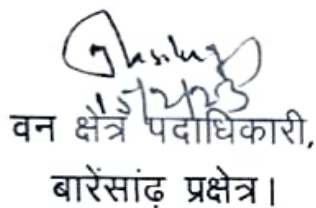 वन क्षेत्र पदाधिकारी,
बारेसांढ़ प्रक्षेत्र।